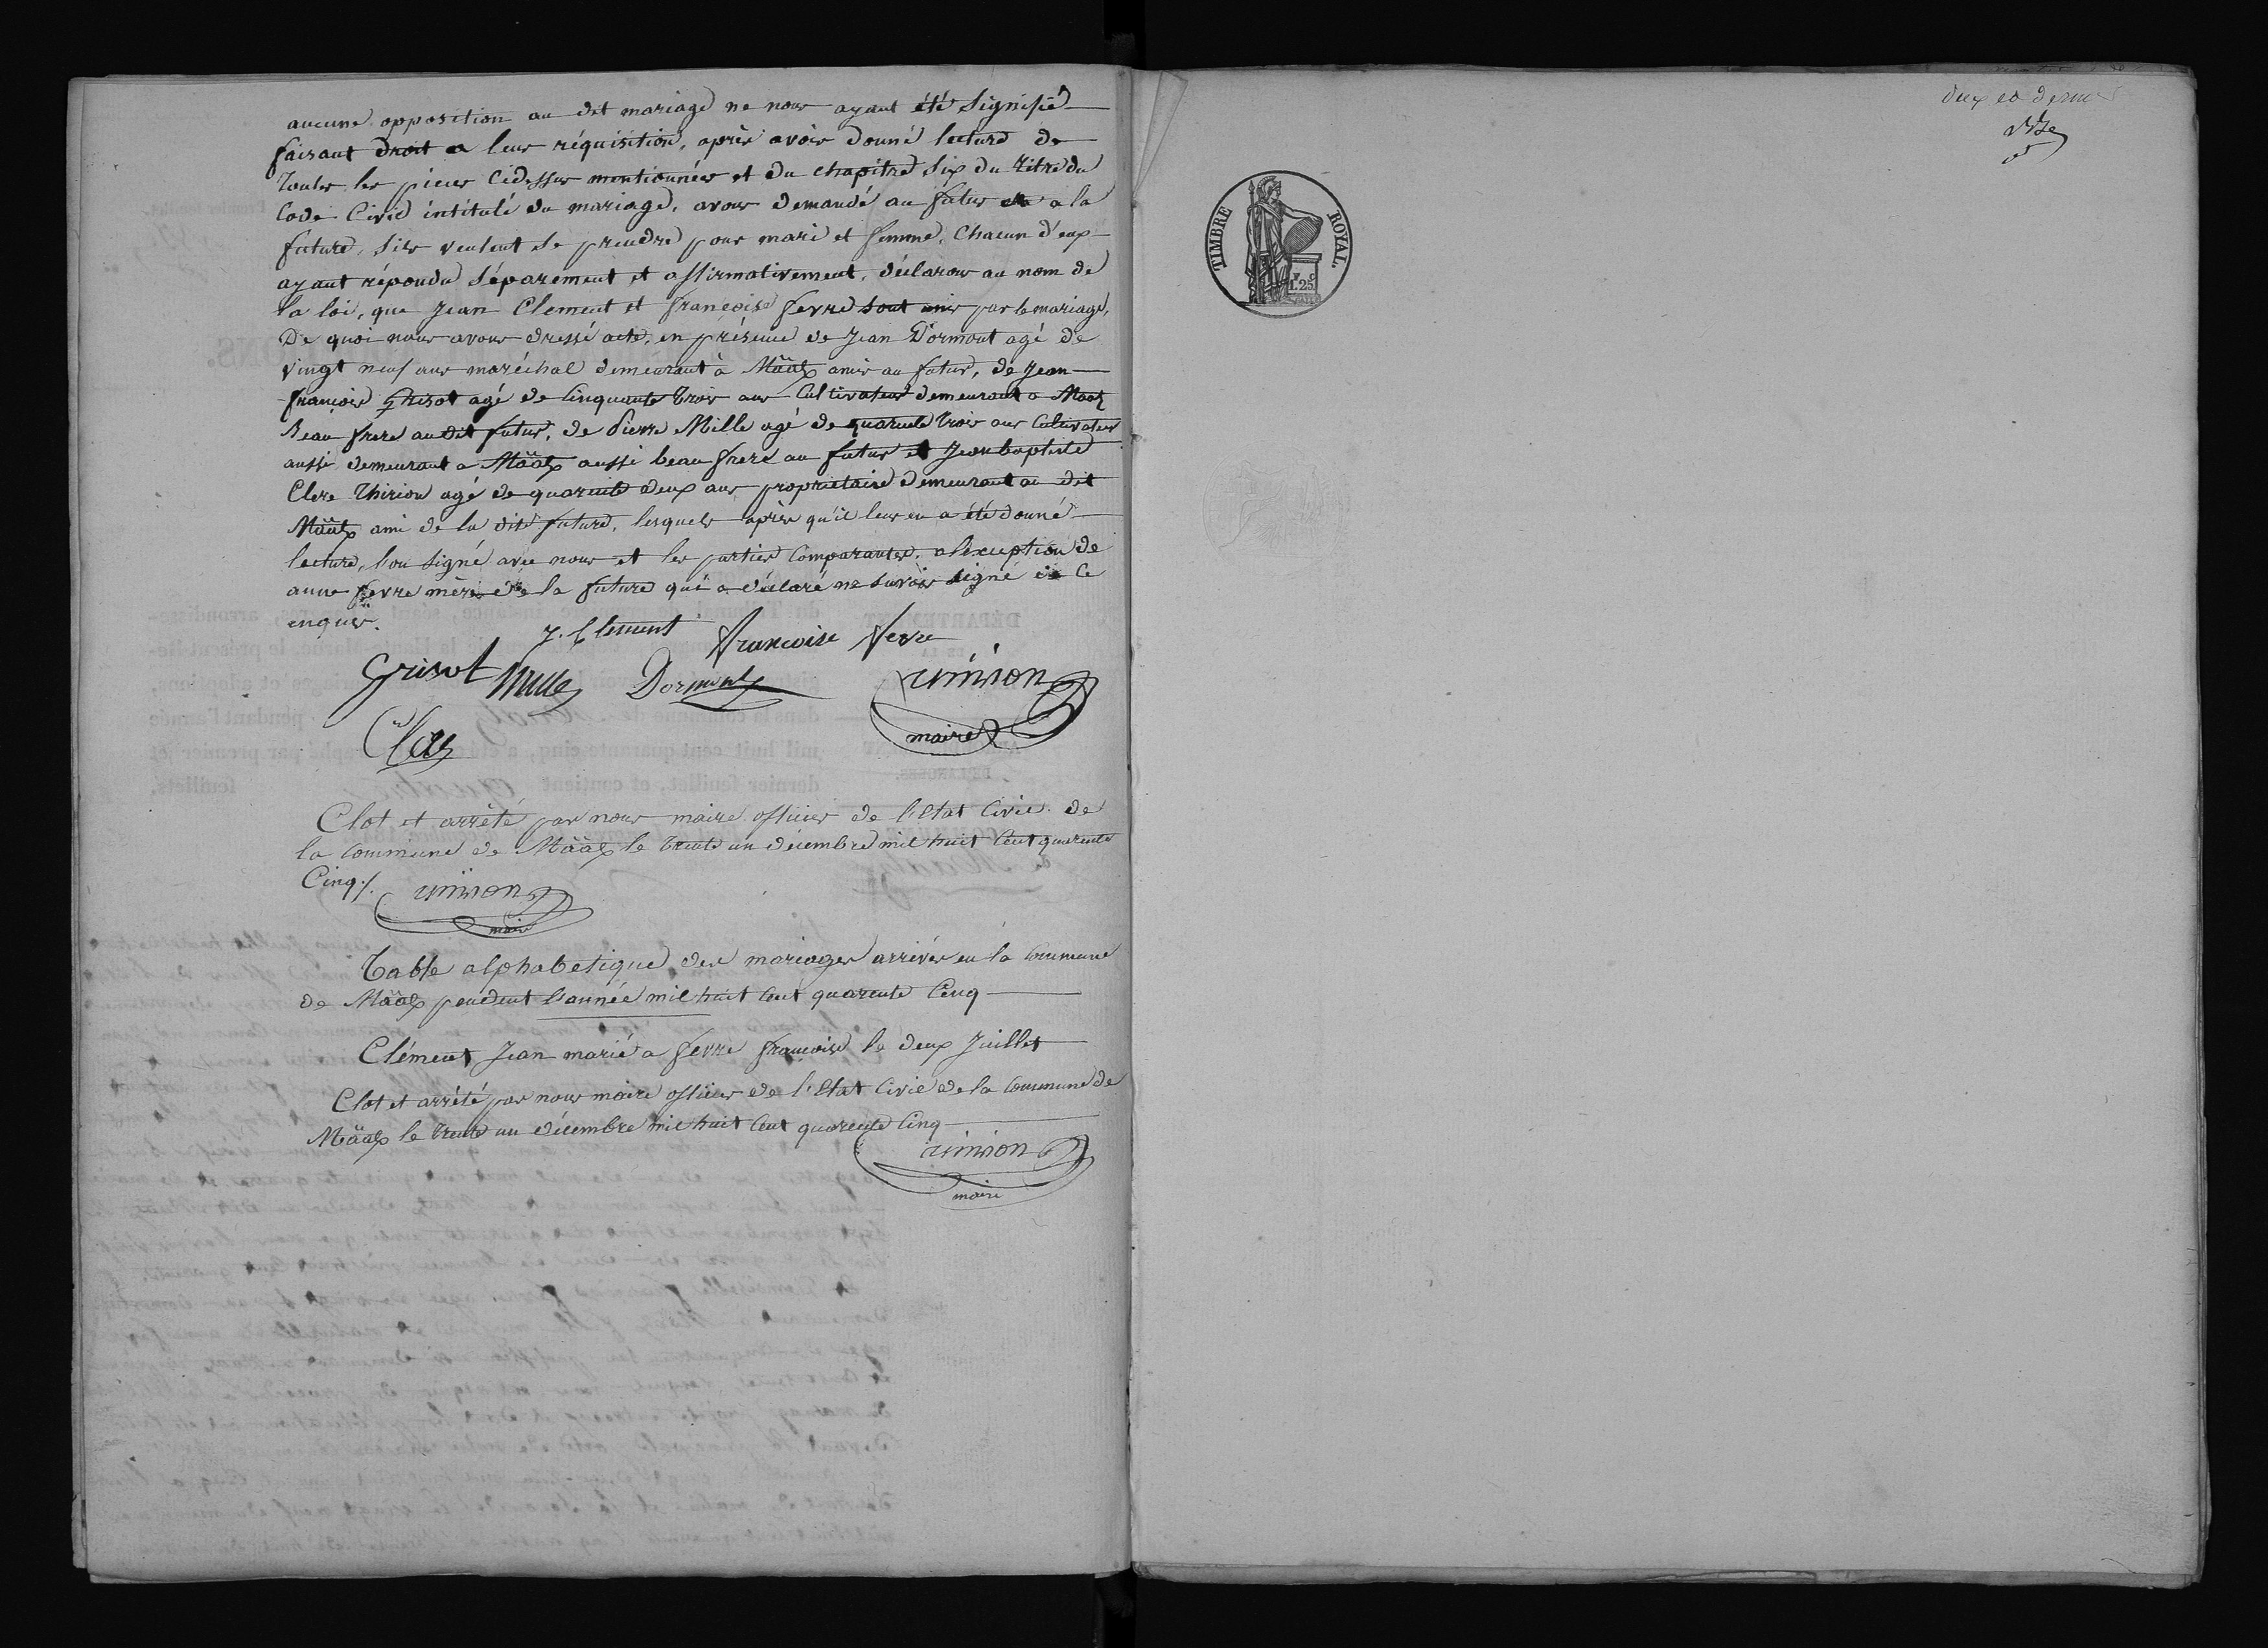 aucune opposition au dit mariage ne nous ayant été signifié
faisant droit a leur réquisition, après avoir donné lecture de
toutes les pièces cidessus mentionnées et du chapitre six du titre du
Code Civil intitulé du mariage, avons demandé au futur et a la
future, sils veulent se prendre pour mari et femme, Chacun d'eux
ayant répondu séparement et affirmativement, déclarons au nom de
la loi, que Jean Clement et françoise fevre sont unis par le mariage,
De quoi nous avons dressé acte, en présence de Jean Dormont agé de
vingt neuf ans maréchal demeurant à Määtz amis au futur, de Jean
françois Grisot agé de Cinquante trois ans Cultivateur demeurant a Maatz
Beau frere audit futur, de Pierre Mille agé de quarante trois ans Cultivateur
aussi demeurant a Määtz aussi beau frere au futur et Jeanbaptiste
Clere Thirion agé de quarante deux ans propriétaire demeurant au dit
Määtz ami de la dite future, lesquels après qu'il leur en a été donné
lecture, l'on signé avec nous et les parties Comparantes, a lexception de
anne fevre mère de la future qui a déclaré ne savoir signé de Ce
enquis.
J. Clement
francoise fevre
Grisot Mille Dormont
maire
Clot et arrêté par nous maire officier de l'Etat Civil de
la Commune de Määtz le trente un décembre mil huit Cent quarente
Cinq ./.
maire
Table alphabetique des mariages arrivés en la Commune
de Määtz pendent l'année mil huit Cent quarente Cinq
Clément Jean marié a fevre françoise le deux Juillet
Clot et arrété par nous maire officier de l'Etat Civil de la Commune de
Määtz le trente un décembre mil huit Cent quarente Cinq
maire
TIMBRE ROYAL.
F. C
1.25